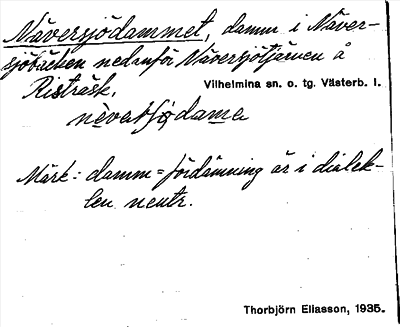 Näversjödammet, damm i Näver-
sjöbäcken nedanför Näversjötjärnen å
Risträsk.
Vilhelmina sn. o. tg. Västerb. l.
Märk: damm = fördämning är i dialek-
ten neutr.
Thorbjörn Eliasson, 1935.